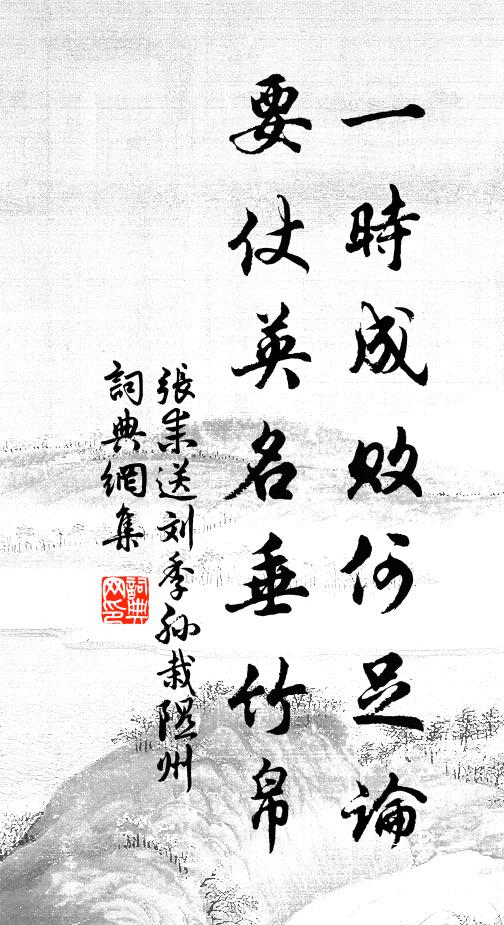 一時成敗何足論
要仗英名垂竹帛
張耒送刘季孙栽隰州
詞典網集
詞典网印